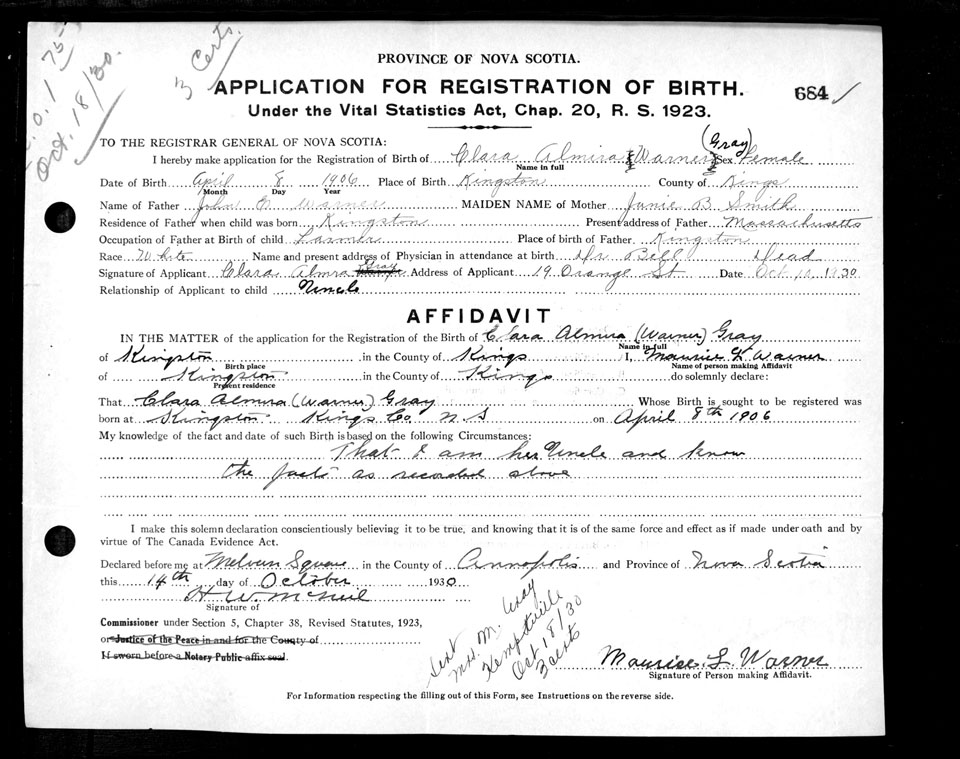 C.O.D. 1 75
Oct. 18/30.
3 Certs.
PROVINCE OF NOVA SCOTIA.
APPLICATION FOR REGISTRATION OF BIRTH.
684 ✓
Under the Vital Statistics Act, Chap. 20, R. S. 1923.
TO THE REGISTRAR GENERAL OF NOVA SCOTIA:
(Gray)
I hereby make application for the Registration of Birth of Clara Almira (Warner) Sex Female
Name in full
Date of Birth April 8 1906 Place of Birth Kingston County of Kings
Month Day Year
Name of Father John Warner MAIDEN NAME of Mother Janie B Smith
Residence of Father when child was born Kingston Present address of Father Massachusetts
Occupation of Father at Birth of child Farmer Place of birth of Father Kingston
Race White Name and present address of Physician in attendance at birth Dr Bell Dead
Signature of Applicant Clara Almira Gray Address of Applicant 19 Orange St Date Oct 10 1930
Relationship of Applicant to child Uncle
AFFIDAVIT
IN THE MATTER of the application for the Registration of the Birth of Clara Almira (Warner) Gray
Name in full
of Kingston in the County of Kings I, Maurice L Warner
Birth place Name of person making Affidavit
of Kingston in the County of Kings do solemnly declare:
Present residence
That Clara Almira (Warner) Gray Whose Birth is sought to be registered was
born at Kingston Kings Co N S on April 8th 1906
My knowledge of the fact and date of such Birth is based on the following Circumstances:
That I am her Uncle and know
the facts as recorded above
I make this solemn declaration conscientiously believing it to be true, and knowing that it is of the same force and effect as if made under oath and by
virtue of The Canada Evidence Act.
Declared before me at Melvern Square in the County of Annapolis and Province of Nova Scotia
this 14th day of October 1930
H W. McNeil
Signature of
Commissioner under Section 5, Chapter 38, Revised Statutes, 1923,
or Justice of the Peace in and for the County of
If sworn before a Notary Public affix seal.
Sent
Mrs. M. Gray
Kemptville
Oct 18/30
3 certs
Maurice L. Warner
Signature of Person making Affidavit.
For Information respecting the filling out of this Form, see Instructions on the reverse side.